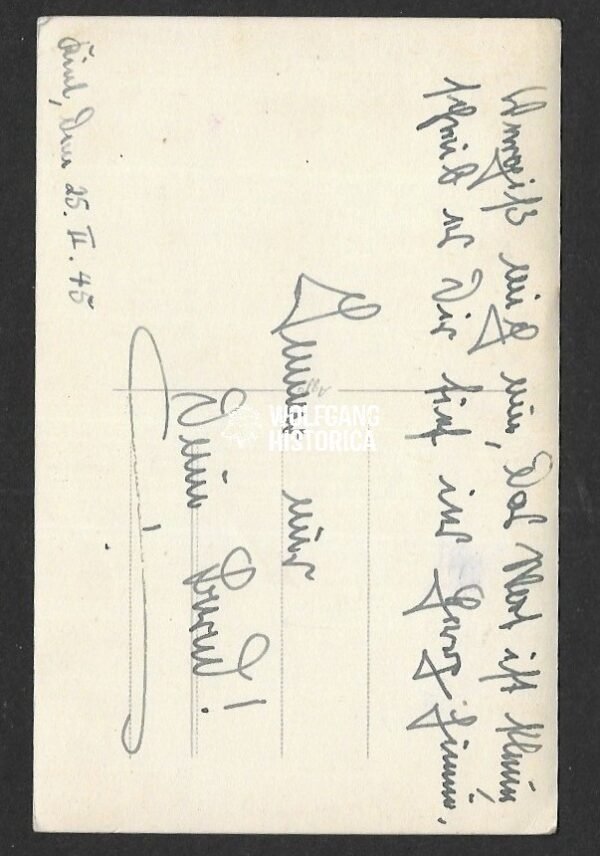 den 25. II. 45
Vergiß mich nie, Das Wort ist klein
schreib es Dir tief ins Herz hinein,
Immer
nur
Dein
WOLFGANG
HISTORICA